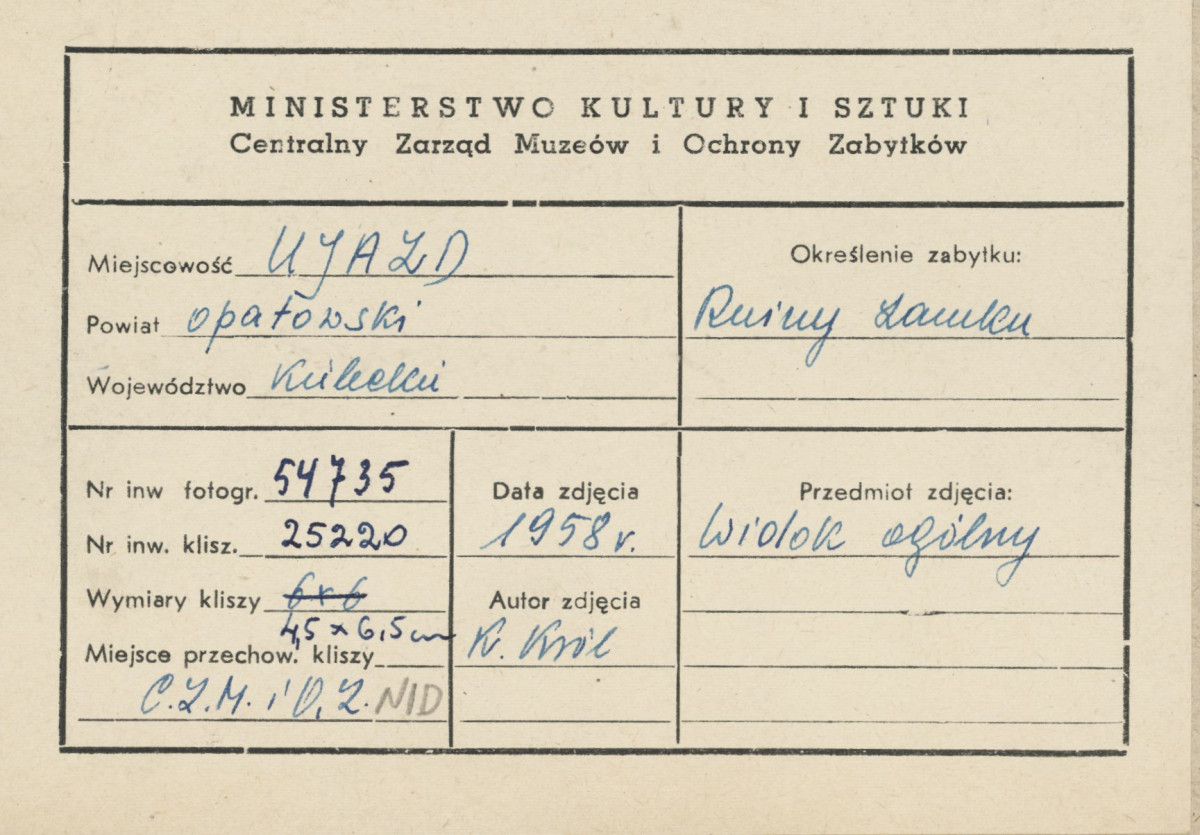 MINISTERSTWO KULTURY I SZTUKI
Centralny Zarząd Muzeów i Ochrony Zabytków
Miejscowość UJAZD
Powiat opatowski
Województwo kielecki
Określenie zabytku:
Ruiny zamku
Nr inw fotogr. 54735
Nr inw. klisz. 25220
Wymiary kliszy 6x6
4,5 x 6,5 cm
Miejsce przechow. kliszy
C.Z.M. i O.Z. NID
Data zdjęcia
1958 r.
Autor zdjęcia
K. Król
Przedmiot zdjęcia:
Widok ogólny